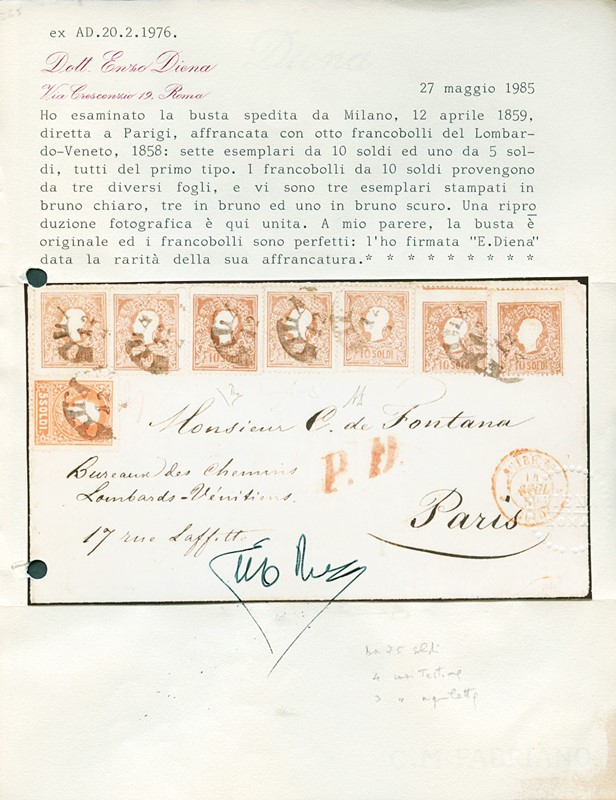 ex AD.20.2.1976.
Dott. Enzo Diena
Via Crescenzio 19, Roma
27 maggio 1985
Ho esaminato la busta spedita da Milano, 12 aprile 1859,
diretta a Parigi, affrancata con otto francobolli del Lombar-
do-Veneto, 1858: sette esemplari da 10 soldi ed uno da 5 sol-
di, tutti del primo tipo. I francobolli da 10 soldi provengono
da tre diversi fogli, e vi sono tre esemplari stampati in
bruno chiaro, tre in bruno ed uno in bruno scuro. Una ripro
duzione fotografica è qui unita. A mio parere, la busta è
originale ed i francobolli sono perfetti: l'ho firmata "E.Diena"
data la rarità della sua affrancatura.* * * * * * * * * *
10 SOLDI 10 SOLDI 10 SOLDI 10 SOLDI 10 SOLDI 10 SOLDI 10 SOLDI
5 SOLDI
Monsieur C. de Fontana
P.D.
Bureaux des Chemins
Lombards-Vénitiens.
Paris
17 rue Laffitte
soldi
4
3
C.M. FABRIANO